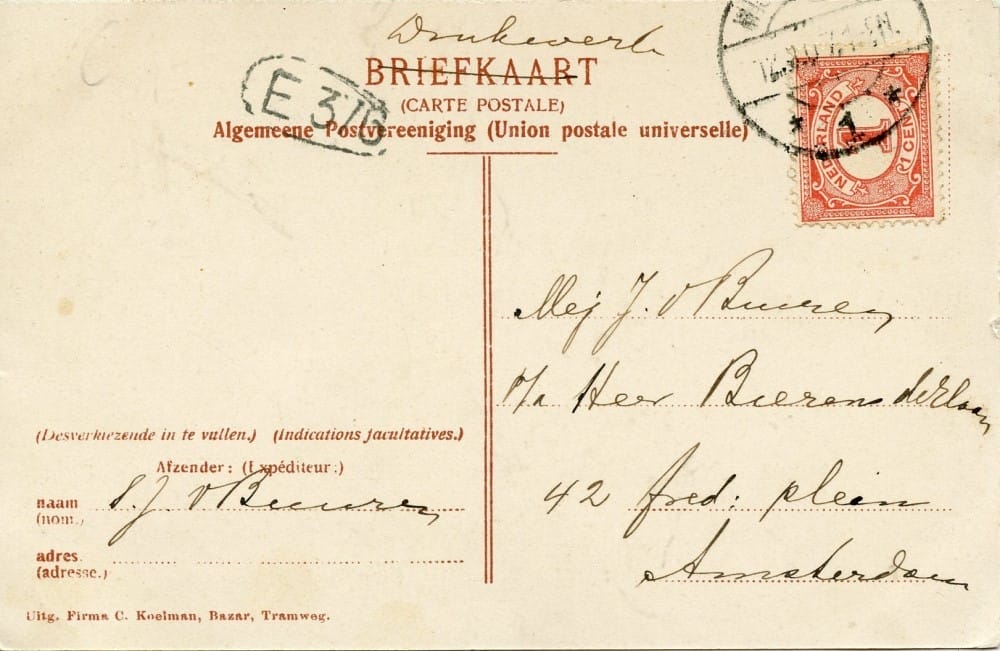 Drukwerk
BRIEFKAART
(CARTE POSTALE)
Algemeene Postvereeniging (Union postale universelle)
E 376
1
NEDERLAND
1 CENT
1
Mej J. v Buuren
p/a Heer Bierens de Haan
42 fred: plein
Amsterdam
(Desverkiezende in te vullen.) (Indications facultatives.)
Afzender: (Expéditeur:)
naam S. J. v Buuren
(nom.)
adres.
(adresse.)
Uitg. Firma C. Koelman, Bazar, Tramweg.